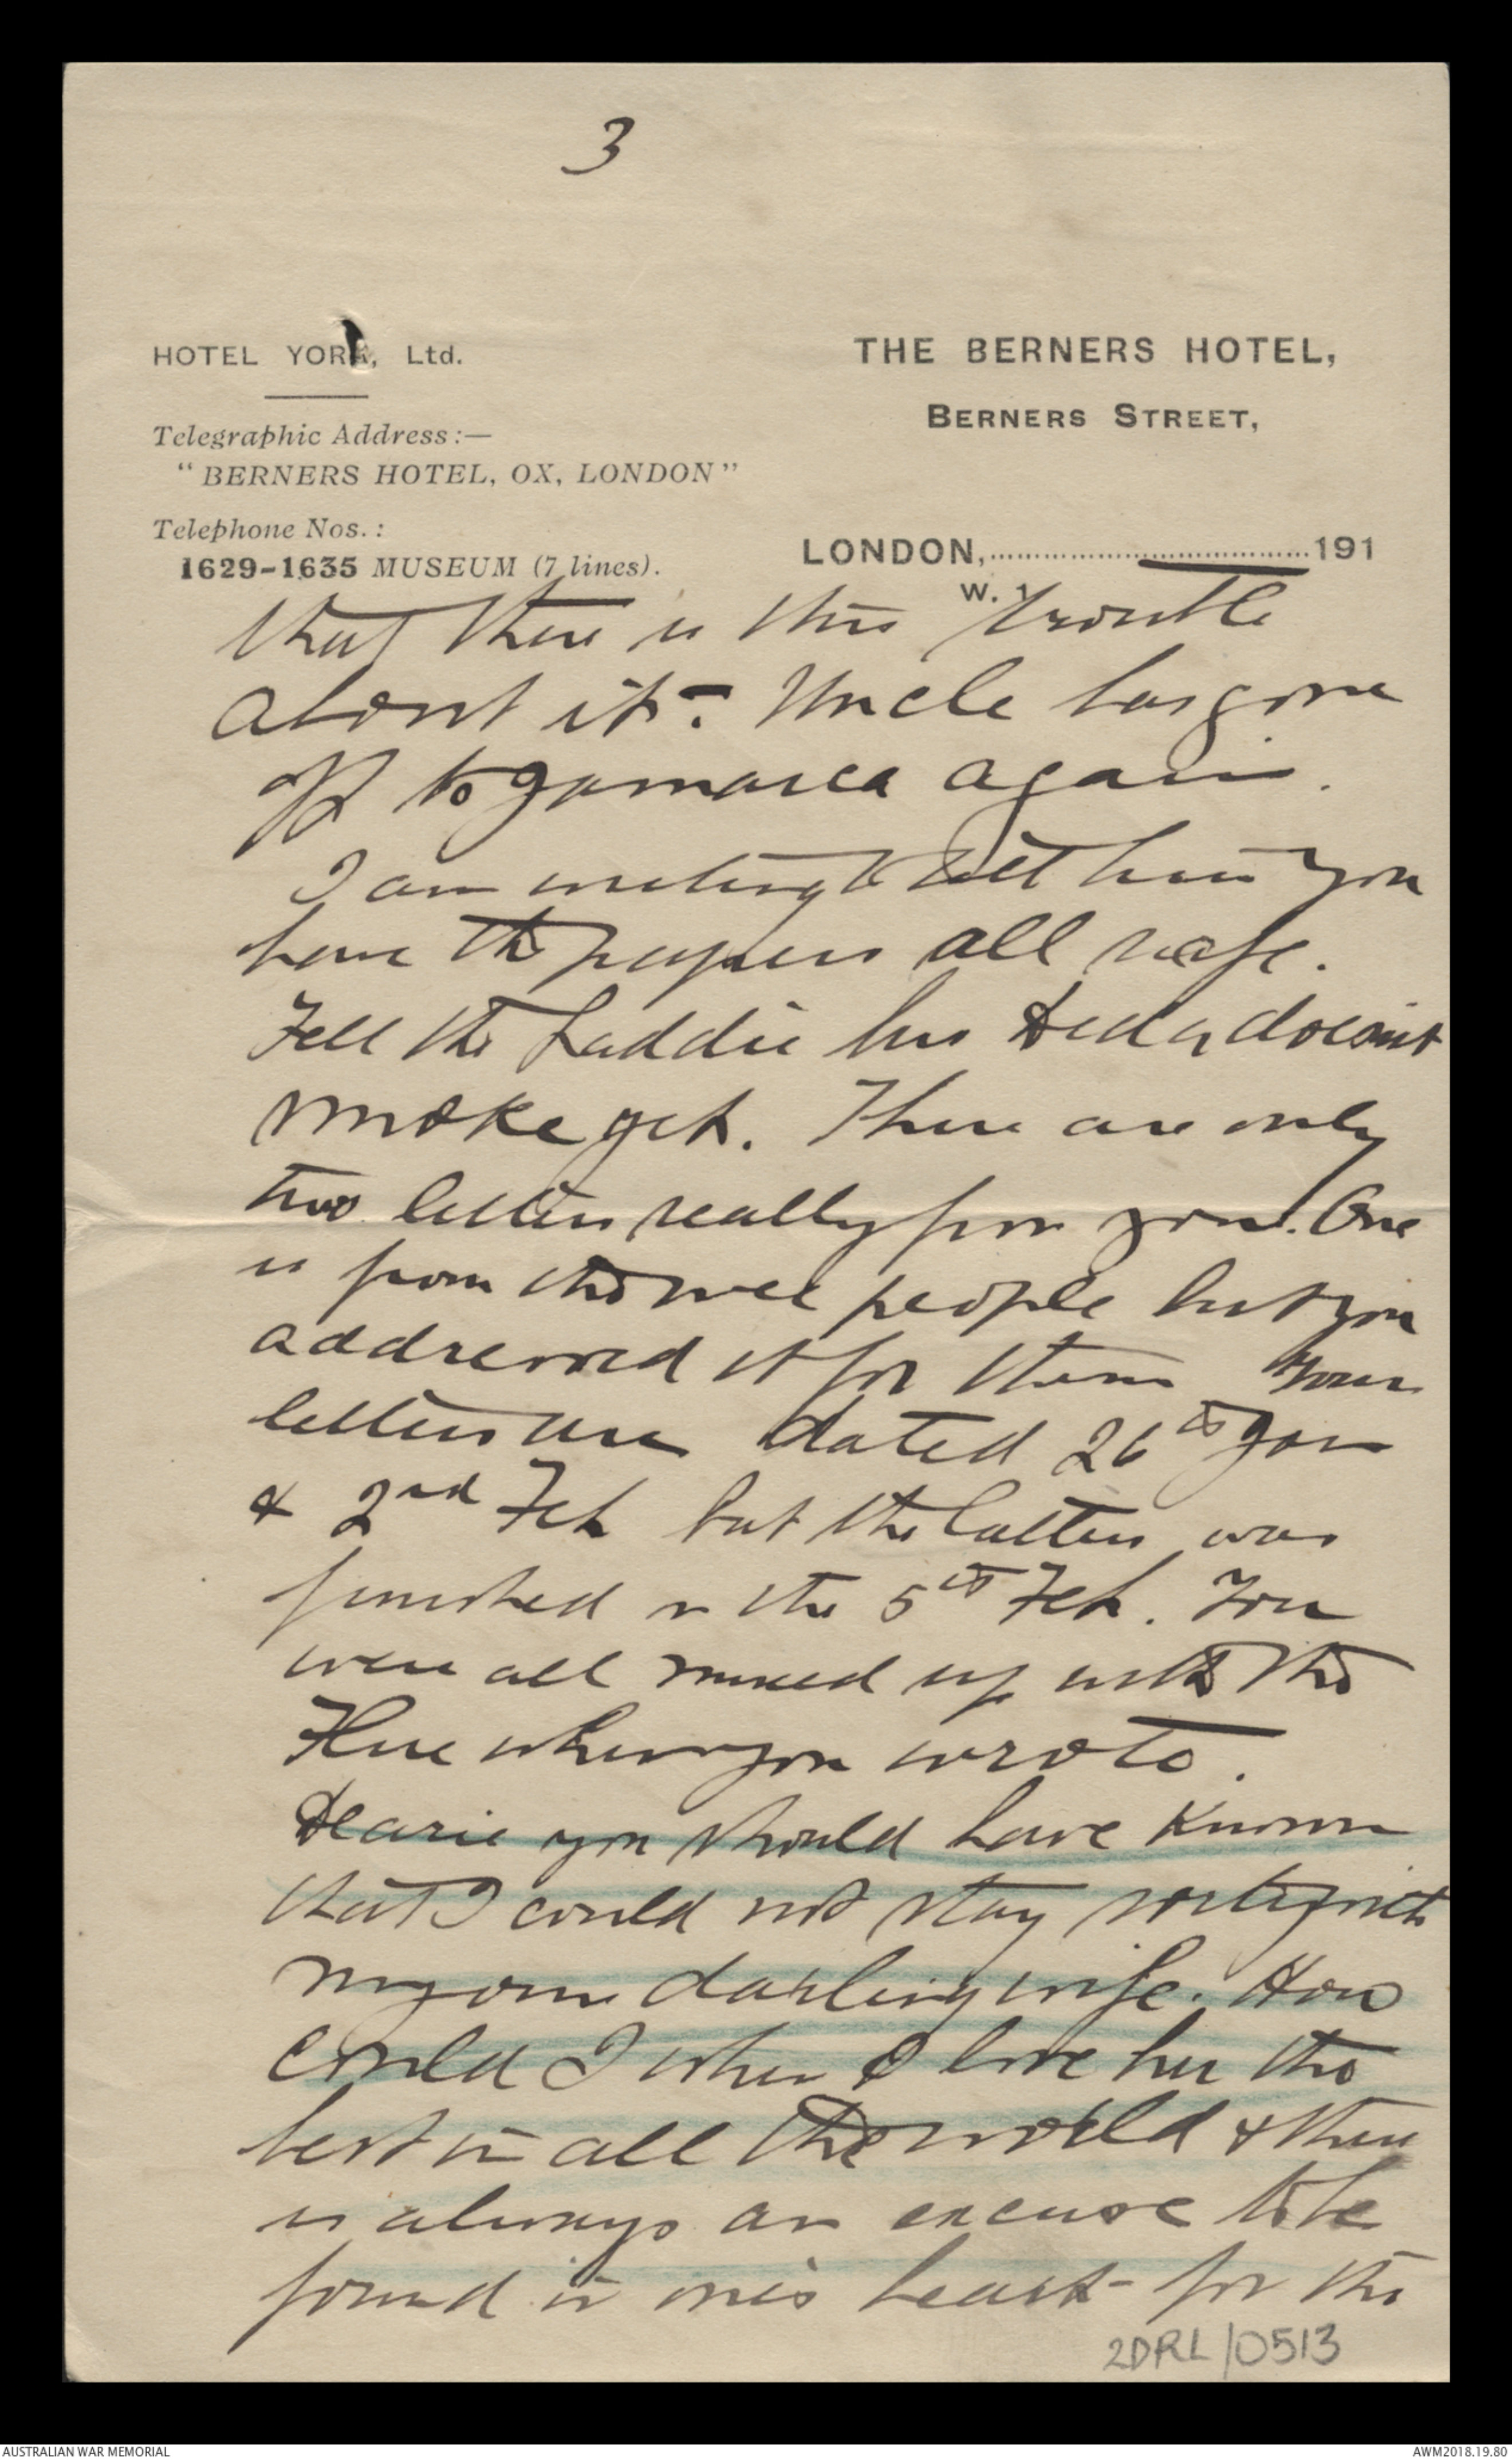 3
HOTEL YORK, Ltd.
THE BERNERS HOTEL,
BERNERS STREET,
Telegraphic Address:—
"BERNERS HOTEL, OX, LONDON"
Telephone Nos.:
1629-1635 MUSEUM (7 lines).
LONDON,....................191
W. 1
that there is this trouble
about it. Uncle has gone
off to Jamaica again.
I am writing to tell him you
have the papers all safe.
Tell the Laddie his Deda doesn't
smoke yet. There are only
two letters really from you. One
is from the wee people but you
addressed it for them Your
letters are dated 26th Jan
& 2nd Feb but the latter was
finished on the 5th Feb. You
were all mixed up with the
Flue when you wrote.
Dearie you should have known
that I could not stay with
my own darling wife. How
could I when I love her the
best in all the world & there
is always an excuse to be
found in one's heart for the
2DRL/0513
AUSTRALIAN WAR MEMORIAL
AWM2018.19.80